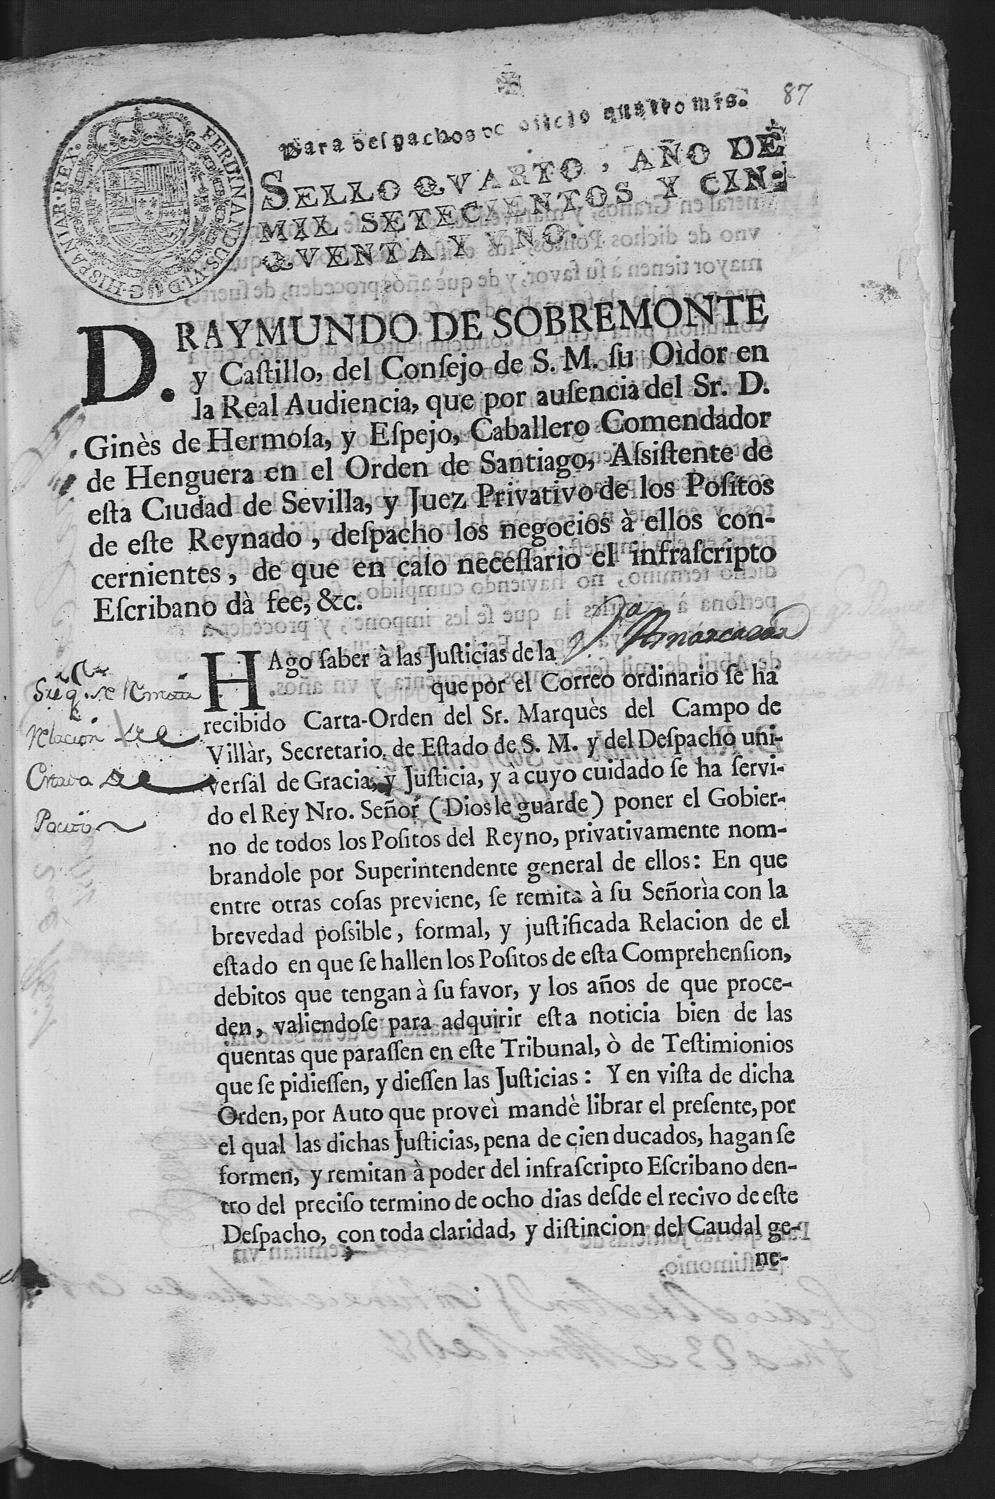 87
Para despachos de oficio quatro mrs.
SELLO QVARTO, AÑO DE
MIL SETECIENTOS Y CIN-
QVENTA Y VNO.
FERDINANDUS·VI·D·G·HISPANIAR·REX·
D. RAYMUNDO DE SOBREMONTE
y Caſtillo, del Conſejo de S. M. ſu Oìdor en
la Real Audiencia, que por auſencia del Sr. D.
Ginès de Hermoſa, y Eſpejo, Caballero Comendador
de Henguera en el Orden de Santiago, Aſsiſtente de
eſta Ciudad de Sevilla, y Juez Privativo de los Poſitos
de eſte Reynado, deſpacho los negocios à ellos con-
cernientes, de que en caſo neceſſario el infraſcripto
Eſcribano dà fee, &c.
HAgo ſaber à las Juſticias de la
que por el Correo ordinario ſe ha
recibido Carta-Orden del Sr. Marquès del Campo de
Villàr, Secretario de Eſtado de S. M. y del Deſpacho uni-
verſàl de Gracia, y Juſticia, y à cuyo cuidado ſe ha ſervi-
do el Rey Nro. Señor (Dios le guarde) poner el Gobier-
no de todos los Poſitos del Reyno, privativamente nom-
brandole por Superintendente general de ellos: En que
entre otras coſas previene, ſe remita à ſu Señorìa con la
brevedad poſsible, formal, y juſtificada Relacion de el
eſtado en que ſe hallen los Poſitos de eſta Comprehenſion,
debitos que tengan à ſu favor, y los años de que proce-
den, valiendoſe para adquirir eſta noticia bien de las
quentas que paraſſen en eſte Tribunal, ò de Teſtimionios
que ſe pidieſſen, y dieſſen las Juſticias: Y en viſta de dicha
Orden, por Auto que proveì mandè librar el preſente, por
el qual las dichas Juſticias, pena de cien ducados, hagan ſe
formen, y remitan à poder del infraſcripto Eſcribano den-
tro del preciſo termino de ocho dias deſde el recivo de eſte
Deſpacho, con toda claridad, y diſtincion del Caudal ge-
ne-
relacion